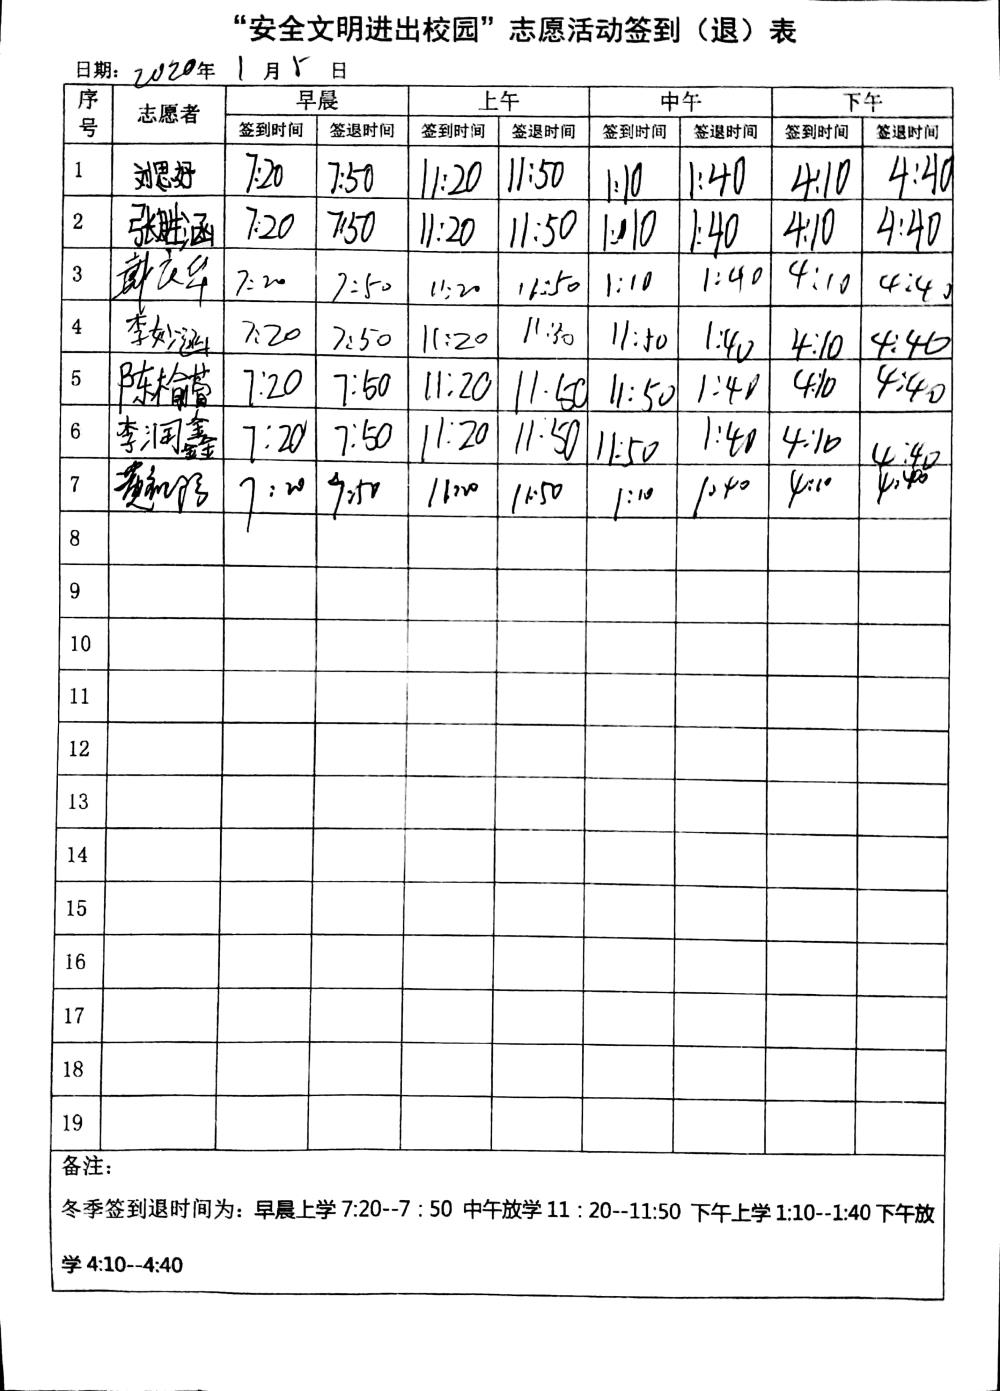 “安全文明进出校园”志愿活动签到（退）表
日期：2020年 1月5日
序号 志愿者 早晨 上午 中午 下午
签到时间 签退时间 签到时间 签退时间 签到时间 签退时间 签到时间 签退时间
1 刘思好 7:20 7:50 11:20 11:50 1:10 1:40 4:10 4:40
2 张胜涵 7:20 7:50 11:20 11:50 1:10 1:40 4:10 4:40
3 7:20 7:50 11:20 11:50 1:10 1:40 4:10 4:40
4 李妙涵 7:20 7:50 11:20 11:50 11:50 1:40 4:10 4:40
5 7:20 7:50 11:20 11:50 11:50 1:40 4:10 4:40
6 李润鑫 7:20 7:50 11:20 11:50 11:50 1:40 4:10 4:40
7 7:20 7:50 11:20 11:50 1:10 1:40 4:10 4:40
8
9
10
11
12
13
14
15
16
17
18
19
备注：
冬季签到退时间为：早晨上学7:20--7：50 中午放学11：20--11:50 下午上学1:10--1:40下午放
学4:10--4:40